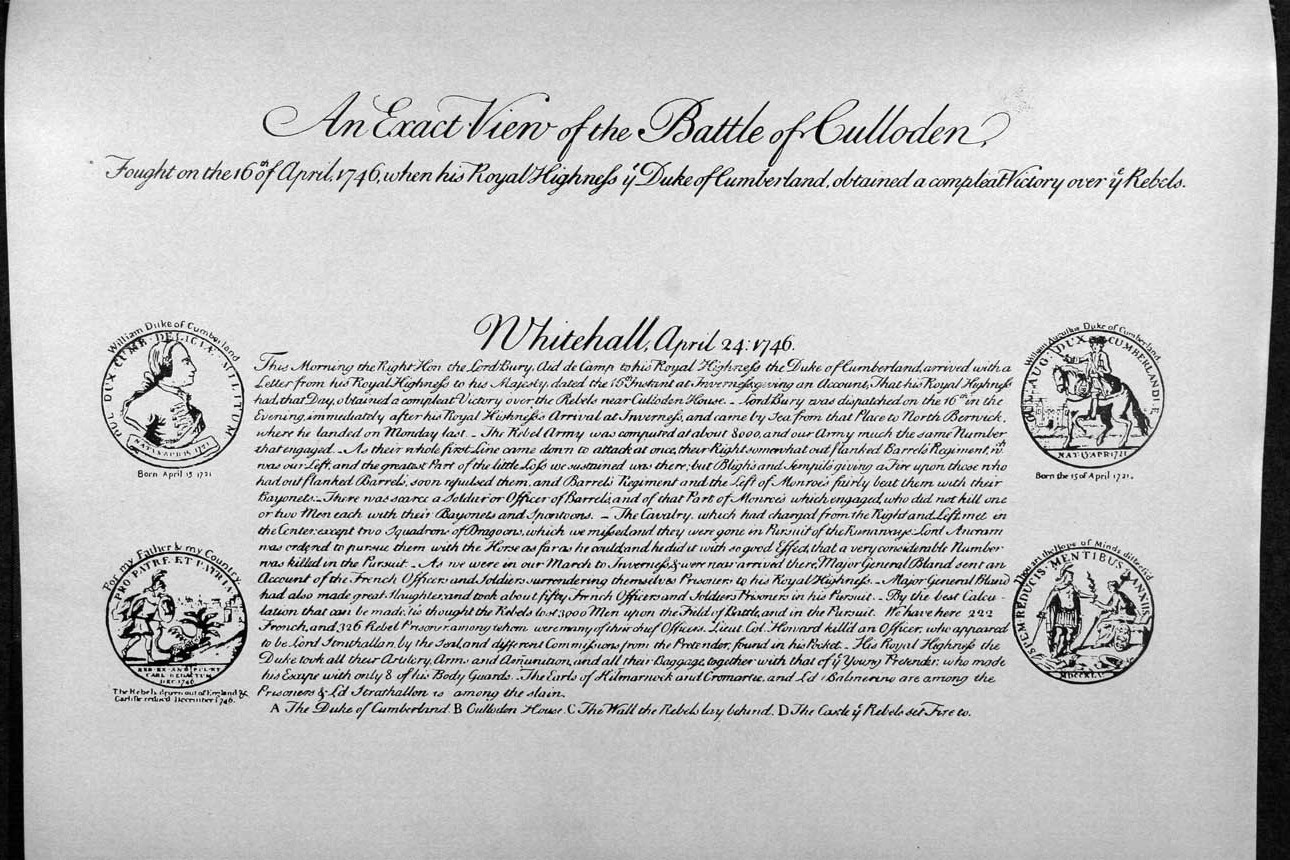 An Exact View of the Battle of Culloden,
Fought on the 16th of April, 1746, when his Royal Highneſs yͤ Duke of Cumberland, obtained a compleat Victory over yͤ Rebels.
Whitehall, April 24: 1746.
This Morning the Right Hon the Lord Bury, Aid de Camp to his Royal Highneſs the Duke of Cumberland, arrived with a
Letter from his Royal Highneſs to his Majesty dated the 16th Instant at Inverneſs, giving an Account, That his Royal Highneſs
had, that Day, obtained a compleat Victory over the Rebels near Culloden House. - Lord Bury was dispatched on the 16th in the
Evening, immediately after his Royal Highneſs's Arrival at Inverneſs, and came by Sea from that Place to North Berwick,
where he landed on Monday last. - The Rebel Army was computed at about 8000, and our Army much the same Number
that engaged. - As their whole first Line came down to attack at once, their Right somewhat out flanked Barrel's Regiment, wch
was our Left, and the greatest Part of the little Loſs we sustained was there; but Bligh's and Sempils giving a Fire upon those who
had out flanked Barrels, soon repulsed them, and Barrels Regiment and the Left of Monroe's fairly beat them with their
Bayonets. - There was scarce a Soldier or Officer of Barrels, and of that Part of Monroe's which engaged, who did not kill one
or two Men each with their Bayonets and Spontoons. - The Cavalry, which had charged from the Right and Left, met in
the Center, except two Squadrons of Dragoons, which we miſsed, and they were gone in Pursuit of the Runaways. Lord Ancram
was ordered to pursue them with the Horse as far as he could, and he did it with so good Effect, that a very considerable Number
was killed in the Pursuit. - As we were in our March to Inverneſs, & were near arrived there, Major General Bland sent an
Account of the French Officers and Soldiers surrendering themselves Prisoners to his Royal Highneſs. - Major General Bland
had also made great Slaughter, and took about fifty French Officers and Soldiers Prisoners in his Pursuit. - By the best Calcu-
lation that can be made, 'tis thought the Rebels lost 3000 Men upon the Feild of Battle, and in the Pursuit. We have here 222
French, and 326 Rebel Prisoners among whom were many of their chief Officers. Lieut. Col. Howard kill'd an Officer, who appeared
to be Lord Strathallan, by the Seal, and different Commiſsions from the Pretender, found in his Pocket. - His Royal Highneſs the
Duke took all their Artilery, Arms and Ammunition, and all their Baggage, together with that of yͤ Young Pretender, who made
his Escape with only 8 of his Body Guards. - The Earls of Kilmarnock and Cromartie, and Ld Balmerino are among the
Prisoners & Ld Strathallon is among the slain.
A The Duke of Cumberland. B Culloden House. C The Wall the Rebels lay behind. D The Castle yͤ Rebels set Fire to.
William Duke of Cumberland
GUL DUX CUMB DELICIÆ MILITUM
NAT XV APRIS 1721
Born April 15 1721
William Augustus Duke of Cumberland
GUIL AUG DUX CUMBERLANDIÆ
NAT 15 APR 1721
Born the 15 of April 1721.
For my Father & my Country.
PRO PATRE ET PATRIA
CARL REDACTUM
DEC 1745
The Rebels driven out of England &
Carlisle reduc'd December 1746.
Thou art the Hope of Minds distress'd
SPEM REDUCIS MENTIBUS ANXIIS
MDCCXLV